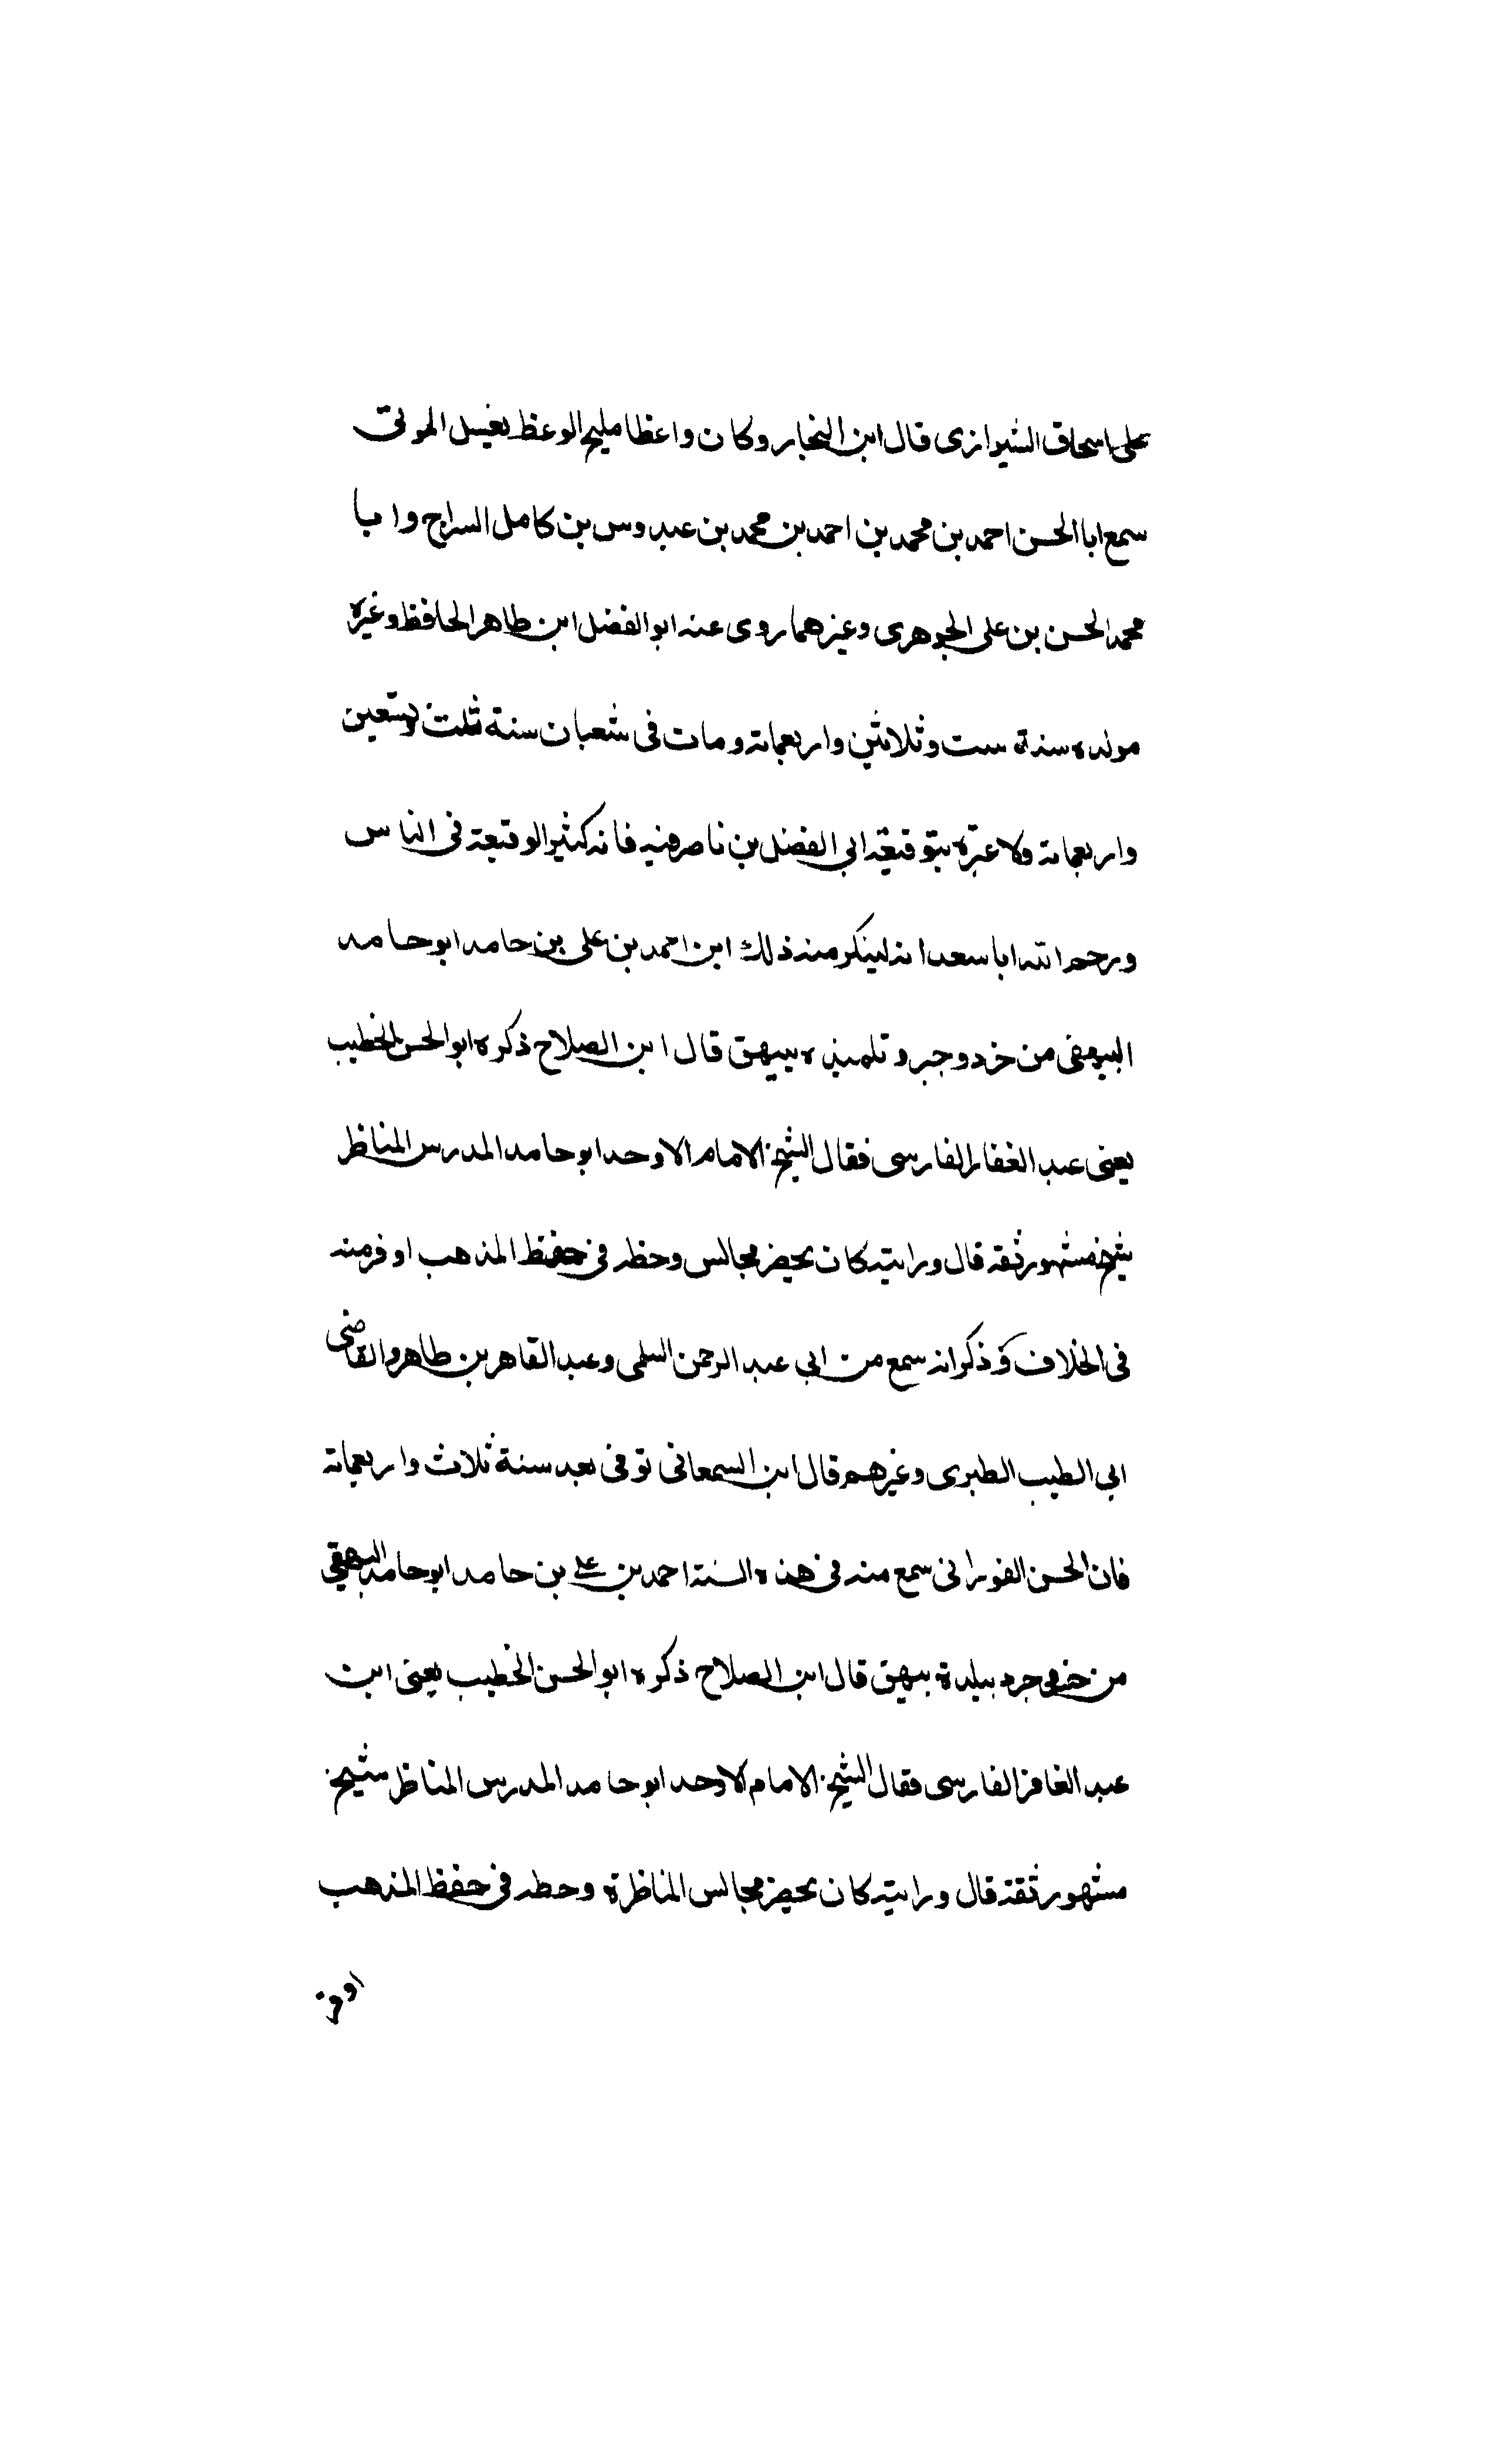 على اسحاق الشيرازى قال ابن النجار وكان واعظا مليح الوعظ يغيسل الموتى
سمع ابا الحسن احمد بن محمد بن احمد بن محمد بن عبدوس بن كامل السراج وابا
محمد الحسن بن على الجوهرى وغيرهما روى عنه ابو الفضل ابن طاهر الحافظ وغيره
مولده سنة ست وثلاثين واربعماته ومات فى شعبان سنة ثلث وتسعين
واربعماته ولا عبرة بتوقيعة ابى الفضل بن ناصر فيه فانه كثير الوقيعة فى الناس
ورحم الله ابا سعد انه لينكر منه ذلك ابن احمد بن على بن حامد ابو حامد
البيهقى من خردوجبر وتلميذه ببيهق قال ابن الصلاح ذكره ابو الحسن الخطيب
يعنى عبد الغفار الفارسى فقال الشيخ الامام الاوحد ابو حامد المدرس المناظر
شيخ مشهور ثقه قال ورايته كان يحضر مجالس وحظه فى حفظ المذهب اوفر منه
فى الخلاف وذكر انه سمع من ابي عبد الرحمن السلمى وعبد القاهر بن طاهر والقاضى
ابي الطيب الطبرى وغيرهم قال ابن السمعانى توفى بعد سنة ثلاث واربعماته
فان الحسن الفورانى سمع منه فى هذه السنة احمد بن على بن حامد ابو حامد البيهقي
من جرد ببلدة بيهق قال ابن الصلاح ذكره ابو الحسن الخطيب يعنى ابن
عبد الغافر الفارسى فقال الشيخ الامام الاوحد ابو حامد المدرس المناظر شيخ
مشهور ثقة قال ورايته كان يحضر مجالس المناظرة وحظه فى حفظ المذهب
اوفر